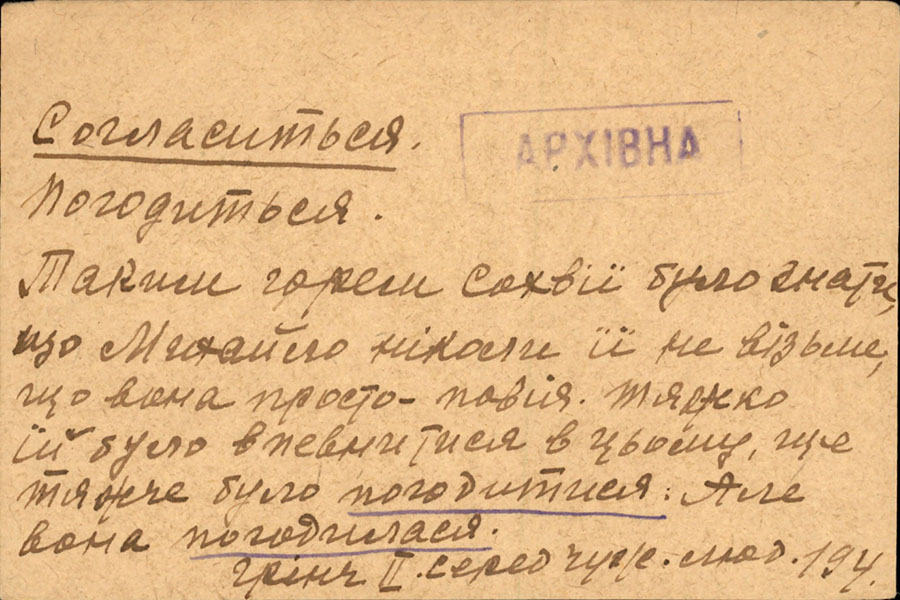 Согласиться.
АРХІВНА
Погодиться.
Таким горем Сохвії було знати,
що Михайло ніколи її не візьме,
що вона просто – повія. Тяжко
їй було впевнитися в цьому, ще
тяжче було погодитися. Але
вона погодилася.
Грінч. II. серед чуж. люд. 194.